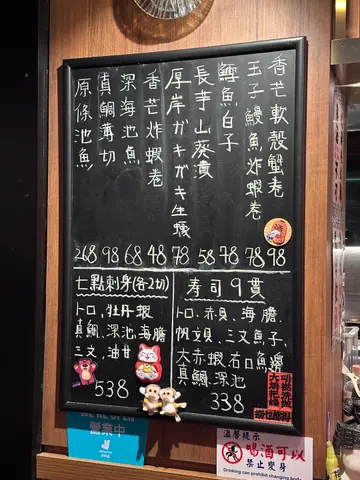 香芒軟殼蟹卷 98
玉子鰻魚炸蝦卷 78
鱈魚白子 78
長芋山葵漬 58
厚岸ガキガキ生蠔 78
香芒炸蝦卷 48
深海池魚 68
真鯛薄切 98
原條池魚 268
七點刺身(各2切)
トロ、牡丹蝦
真鯛、深池、海膽
三文、油甘
538
寿司9貫
トロ、赤貝、海膽
帆立貝、三文魚子、
大赤蝦、右口魚邊
真鯛、深池
338
WE'RE OPEN
營業中
溫馨提示
喝酒可以
禁止變身
Drinking can prohibit changing body